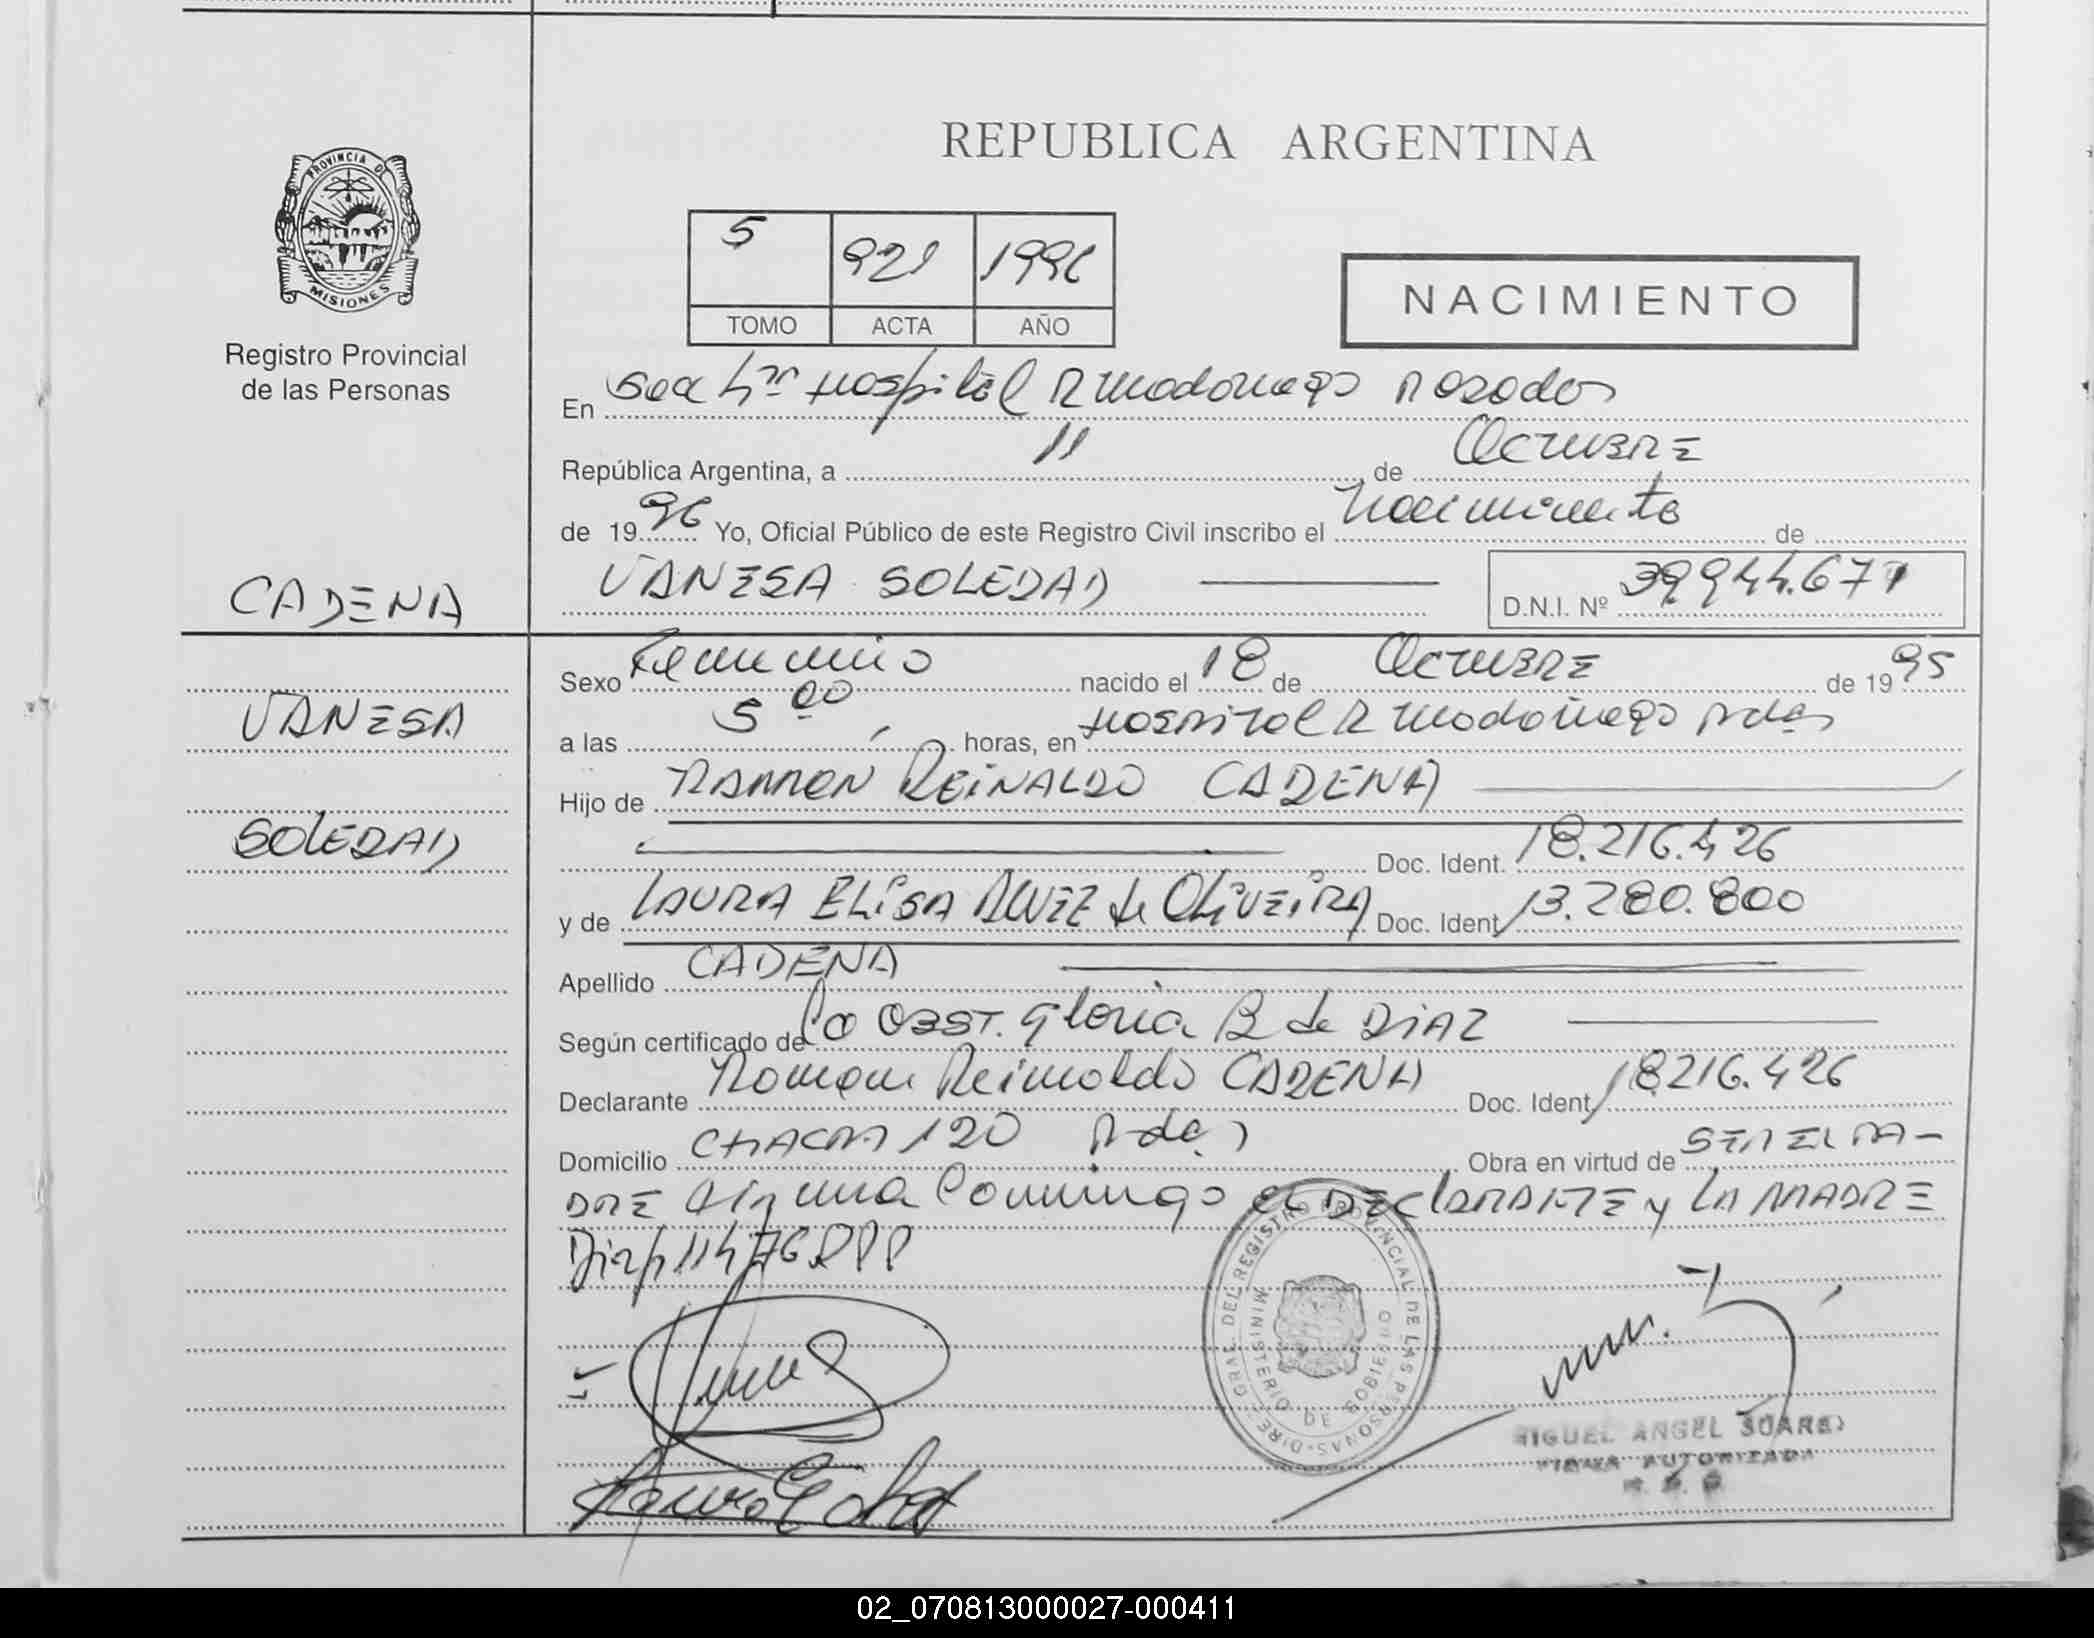 REPUBLICA ARGENTINA
PROVINCIA DE
MISIONES
Registro Provincial
de las Personas
5 921 1996
TOMO ACTA AÑO
NACIMIENTO
En Sec Hospital R Madariaga Posadas
República Argentina, a 11 de Octubre
de 1996 Yo, Oficial Público de este Registro Civil inscribo el Nacimiento de
CADENA
VANESA SOLEDAD D.N.I. Nº 39944.671
Sexo Femenino nacido el 18 de Octubre de 1995
VANESA
a las 5 00 horas, en Hospital R Madariaga Pdas
Hijo de RAMON REINALDO CADENA
SOLEDAD
Doc. Ident. 18.216.426
y de LAURA ELISA ALVEZ de OLIVEIRA Doc. Ident. 13.280.800
Apellido CADENA
Según certificado de La OBST. Gloria B de DIAZ
Declarante Ramon Reinaldo CADENA Doc. Ident. 18.216.426
Domicilio CHACRA 120 Pdas Obra en virtud de SER EL PA-
DRE firma Conmigo el DEClARANTE y LA MADRE
Disp 114/76.RPP
DIREC. GRAL. DEL REGISTRO PROVINCIAL DE LAS PERSONAS
MINISTERIO DE GOBIERNO
MIGUEL ANGEL SUAREZ
FIRMA AUTORIZADA
02_070813000027-000411